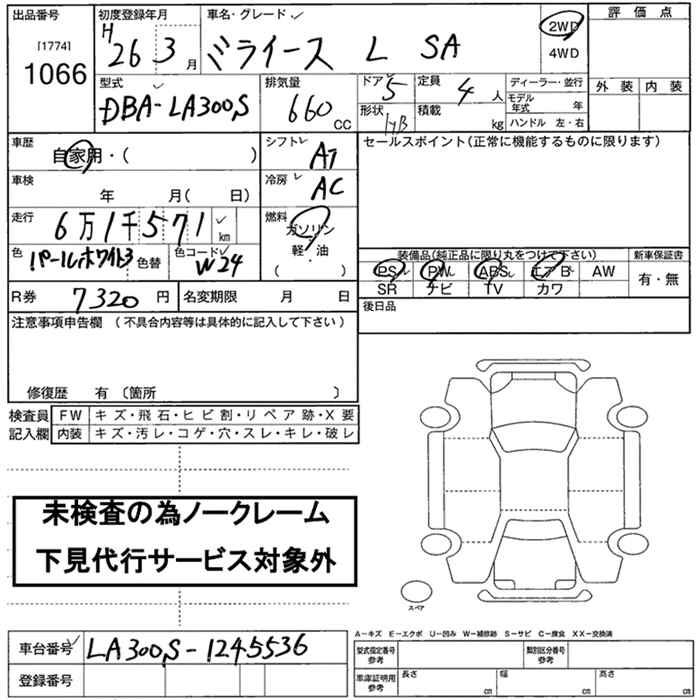 出品番号 初度登録年月 車名・グレード 評価点
[1774] 1066
H 26 3月 ミライース L SA 2WD 4WD
型式 排気量 ドア 定員 ディーラー・並行 外装 内装
DBA-LA300S 660 CC 5 4人 モデル年式 年
形状 H/B 積載 kg ハンドル 左・右
車歴 自家用・( ) シフト AT セールスポイント(正常に機能するものに限ります)
車検 年 月( 日) 冷房 AC
走行 6万1千571 km 燃料 ガソリン 軽・油 ( )
色 パールホワイト3 色替 色コード W24
装備品(純正品に限り丸をつけて下さい) 新車保証書
PS PW ABS エアB AW 有・無
SR ナビ TV カワ
R券 7320円 名変期限 月 日 後日品
注意事項申告欄 (不具合内容等は具体的に記入して下さい)
修復歴 有 〔箇所 〕
検査員 FW キズ・飛石・ヒビ割・リペア跡・X要
記入欄 内装 キズ・汚レ・コゲ・穴・スレ・キレ・破レ
未検査の為ノークレーム
下見代行サービス対象外
スペア
A-キズ E-エクボ U-凹み W-補修跡 S-サビ C-腐食 XX-交換済
車台番号 LA300S-1245536 型式指定番号 参考 類別区分番号 参考
登録番号 車庫証明用 参考 長さ cm 幅 cm 高さ cm